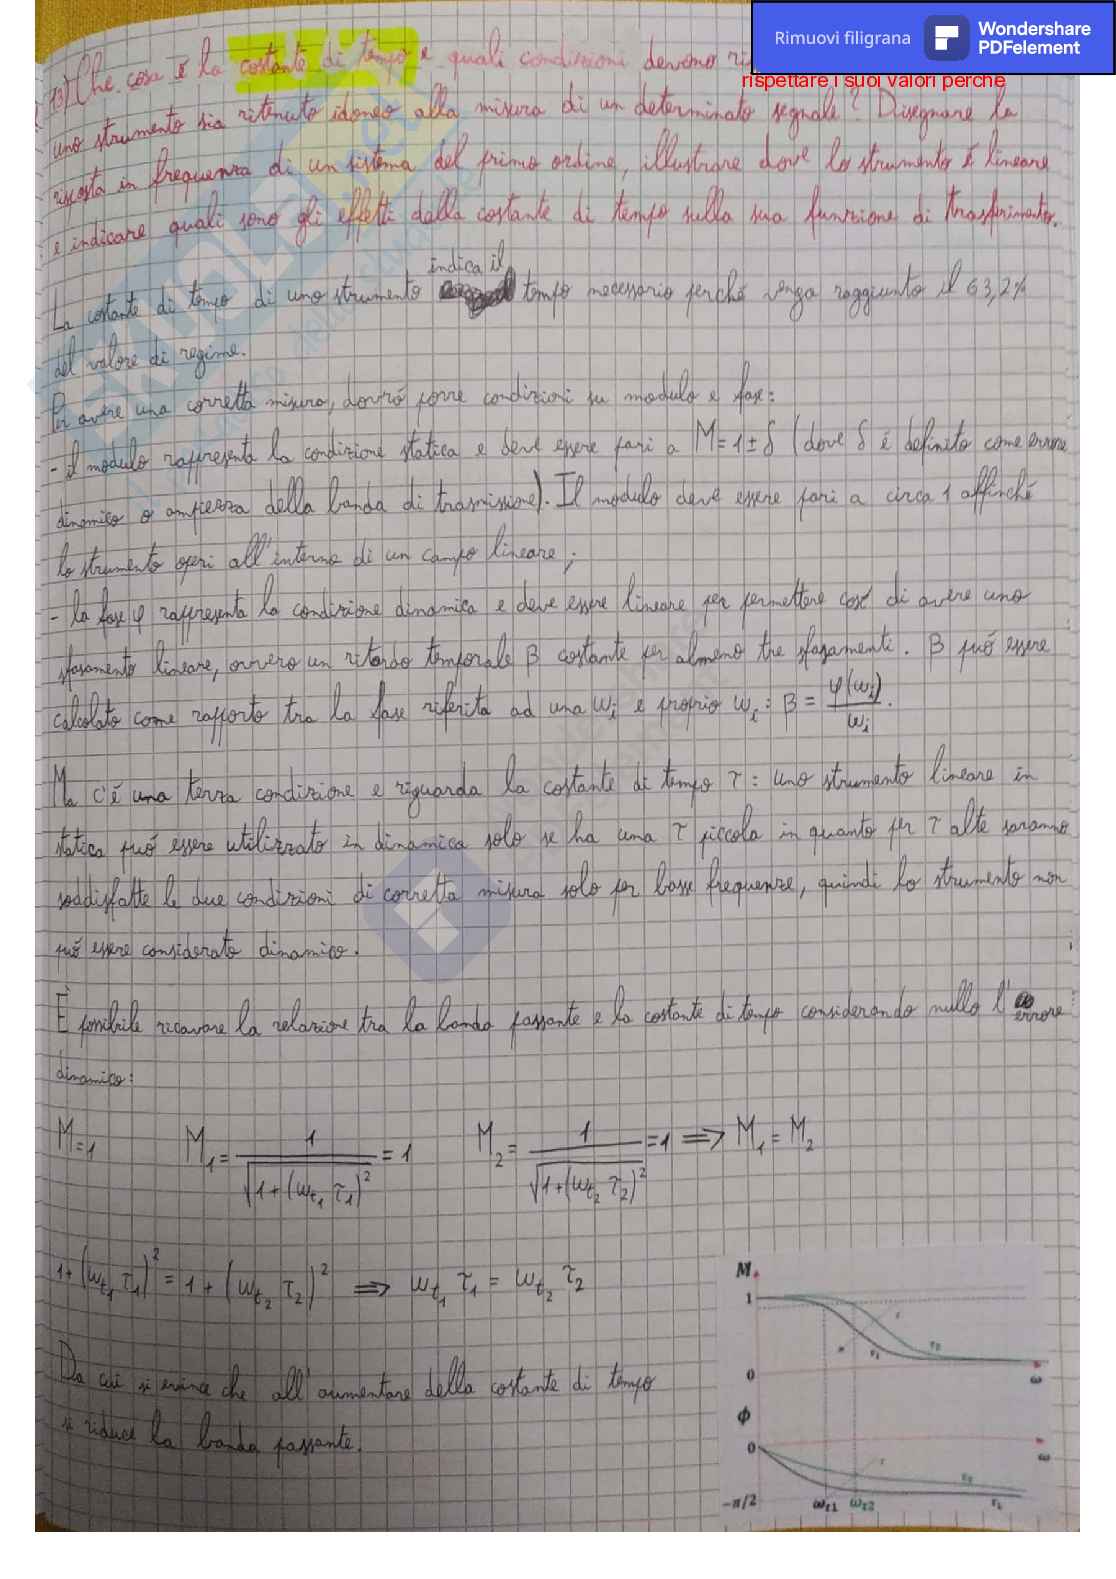 Rimuovi filigrana
Wondershare
PDFelement
13) Che cosa è la costante di tempo e quali condizioni devono ri
rispettare i suoi valori perché
uno strumento sia ritenuto idoneo alla misura di un determinato segnale? Disegnare la
risposta in frequenza di un sistema del primo ordine, illustrare dove lo strumento è lineare
e indicare quali sono gli effetti della costante di tempo sulla sua funzione di trasferimento.
indica il
La costante di tempo di uno strumento tempo necessario perché venga raggiunto il 63,2%
del valore di regime.
Per avere una corretta misura, dovrò porre condizioni su modulo e fase:
- il modulo rappresenta la condizione statica e deve essere pari a M = 1 ± δ (dove δ è definito come errore
dinamico o ampiezza della banda di trasmissione). Il modulo deve essere pari a circa 1 affinché
lo strumento operi all'interno di un campo lineare;
- la fase φ rappresenta la condizione dinamica e deve essere lineare per permettere così di avere uno
sfasamento lineare, ovvero un ritardo temporale β costante per almeno tre sfasamenti. β può essere
calcolato come rapporto tra la fase riferita ad una ωi e proprio ωi: β = φ(ωi)/ωi.
Ma c'è una terza condizione e riguarda la costante di tempo τ: uno strumento lineare in
statica può essere utilizzato in dinamica solo se ha una τ piccola in quanto per τ alte saranno
soddisfatte le due condizioni di corretta misura solo per basse frequenze, quindi lo strumento non
può essere considerato dinamico.
È possibile ricavare la relazione tra la banda passante e la costante di tempo considerando nullo l'errore
dinamico:
M = 1 M₁ = 1/√(1+(ωt₁ τ₁)²) = 1 M₂ = 1/√(1+(ωt₂ τ₂)²) = 1 ⟹ M₁ = M₂
1+(ωt₁ τ₁)² = 1+(ωt₂ τ₂)² ⟹ ωt₁ τ₁ = ωt₂ τ₂
Da cui si evince che all'aumentare della costante di tempo
si riduce la banda passante.
M
1
τ₂
τ₁
0
ω
Φ
0
ω
τ₂
-π/2 ωt1 ωt2 τ₁